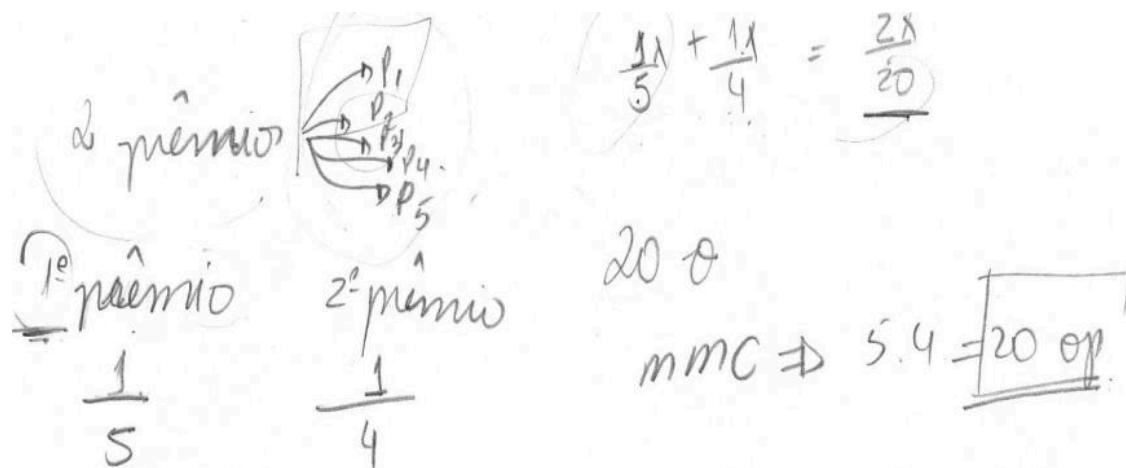 2 prêmios
P1
P2
P3
P4
P5
1x/5 + 1x/4 = 2x/20
1º prêmio 2º prêmio
1/5 1/4
20 o
mmc ⇒ 5.4 = 20 op